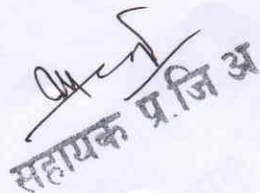 सहायक प्र.जि अ